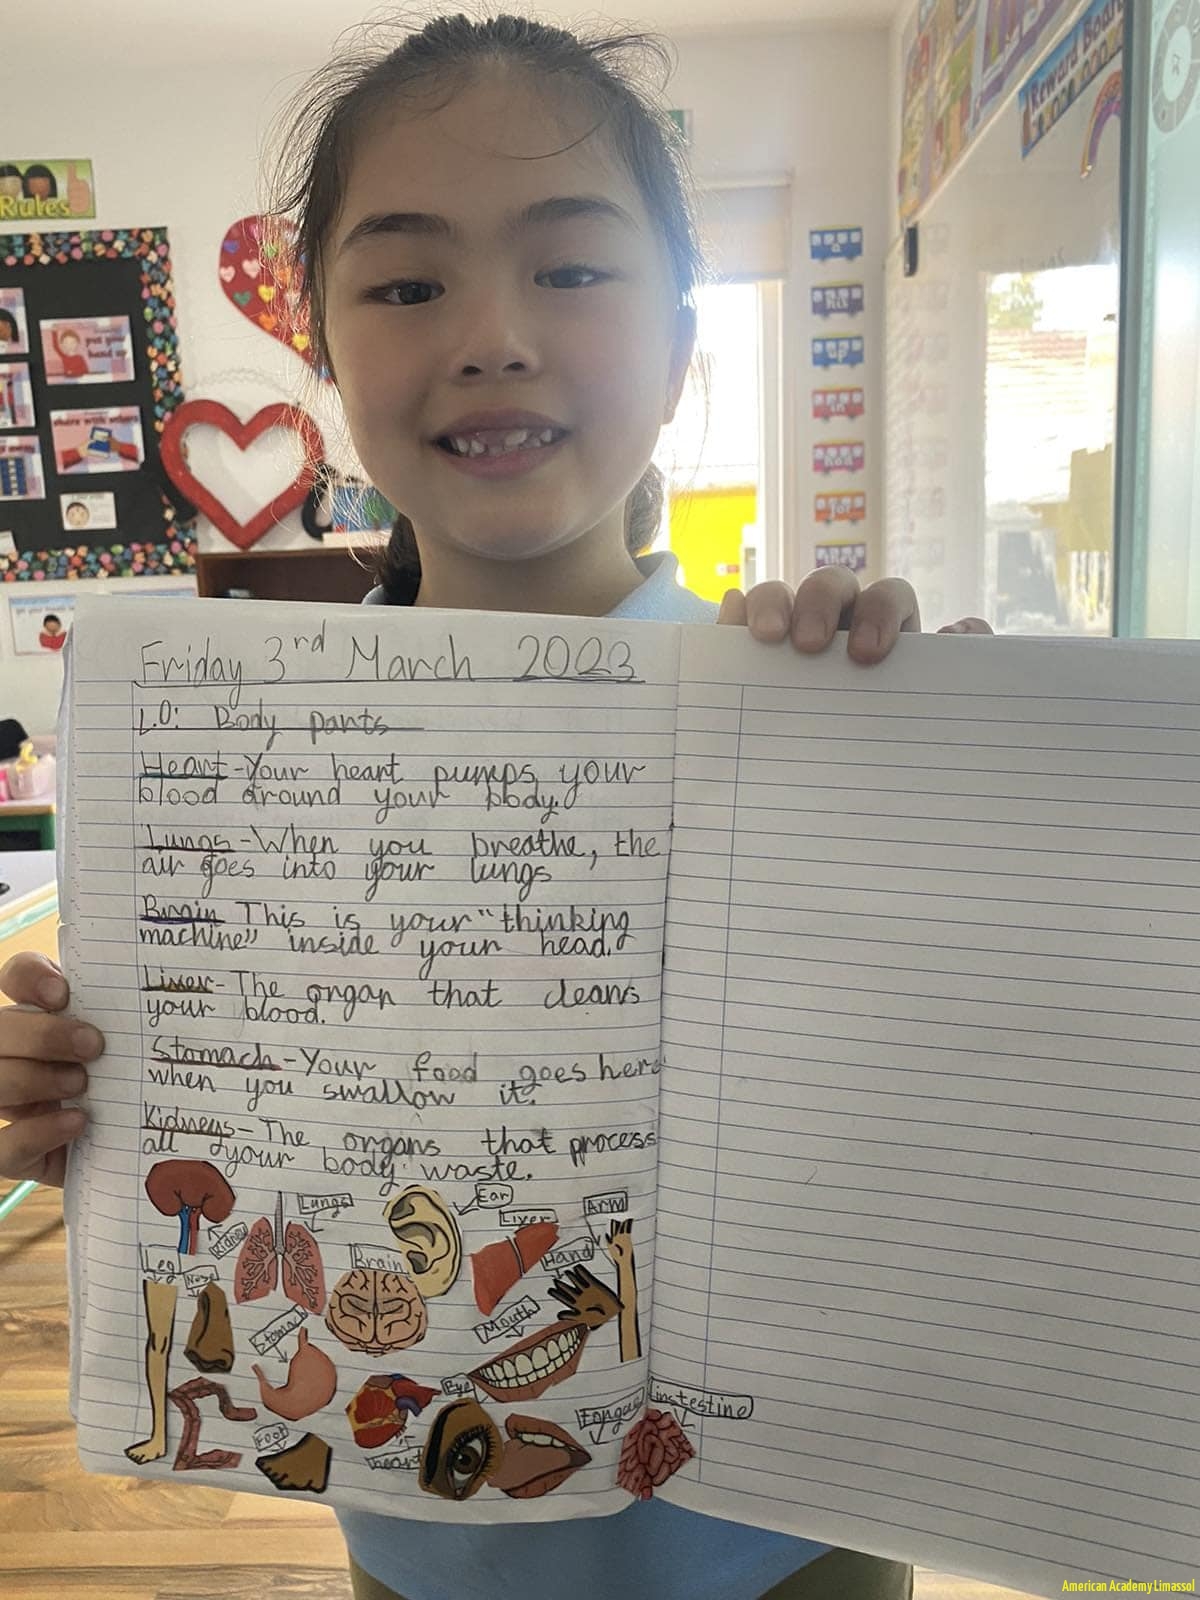 Rules
Reward Board
put your
hand up
share with others
a
his
up
in
had
for
they
Friday 3rd March 2023
L.O: Body parts
Heart-Your heart pumps your
blood around your body.
Lungs-When you breathe, the
air goes into your lungs
Brain This is your "thinking
machine" inside your head.
Liver-The organ that cleans
your blood.
Stomach-Your food goes here
when you swallow it.
Kidneys-The organs that process
all your body waste.
Kidney
Lungs
Ear
Liver
Arm
Leg
Nose
Brain
Hand
Stomach
Mouth
Eye
Tongue
instestine
Foot
heart
American Academy Limassol